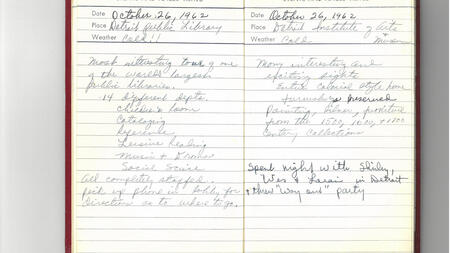 Date October 26, 1962
Place Detroit Public Library
Weather Cold!!
Most interesting tour of one
of the worlds largest
public libraries.
14 different depts.
Children's Room
Cataloging
Reference
Leisure Reading
Music & Drama
Social Science
All completely staffed.
pick up phone in lobby for
direction as to where to go.
Date October 26, 1962
Place Detroit Institute of Arts
Museum
Weather Cold
Many interesting and
exciting sights
Entire Colonial Style home
furnishings preserved
Painting, Silver,
from the 1500, 1600, + 1800
Century Collections
Spent night with Shirley,
Wes & in Detroit
+ threw "Way out" party